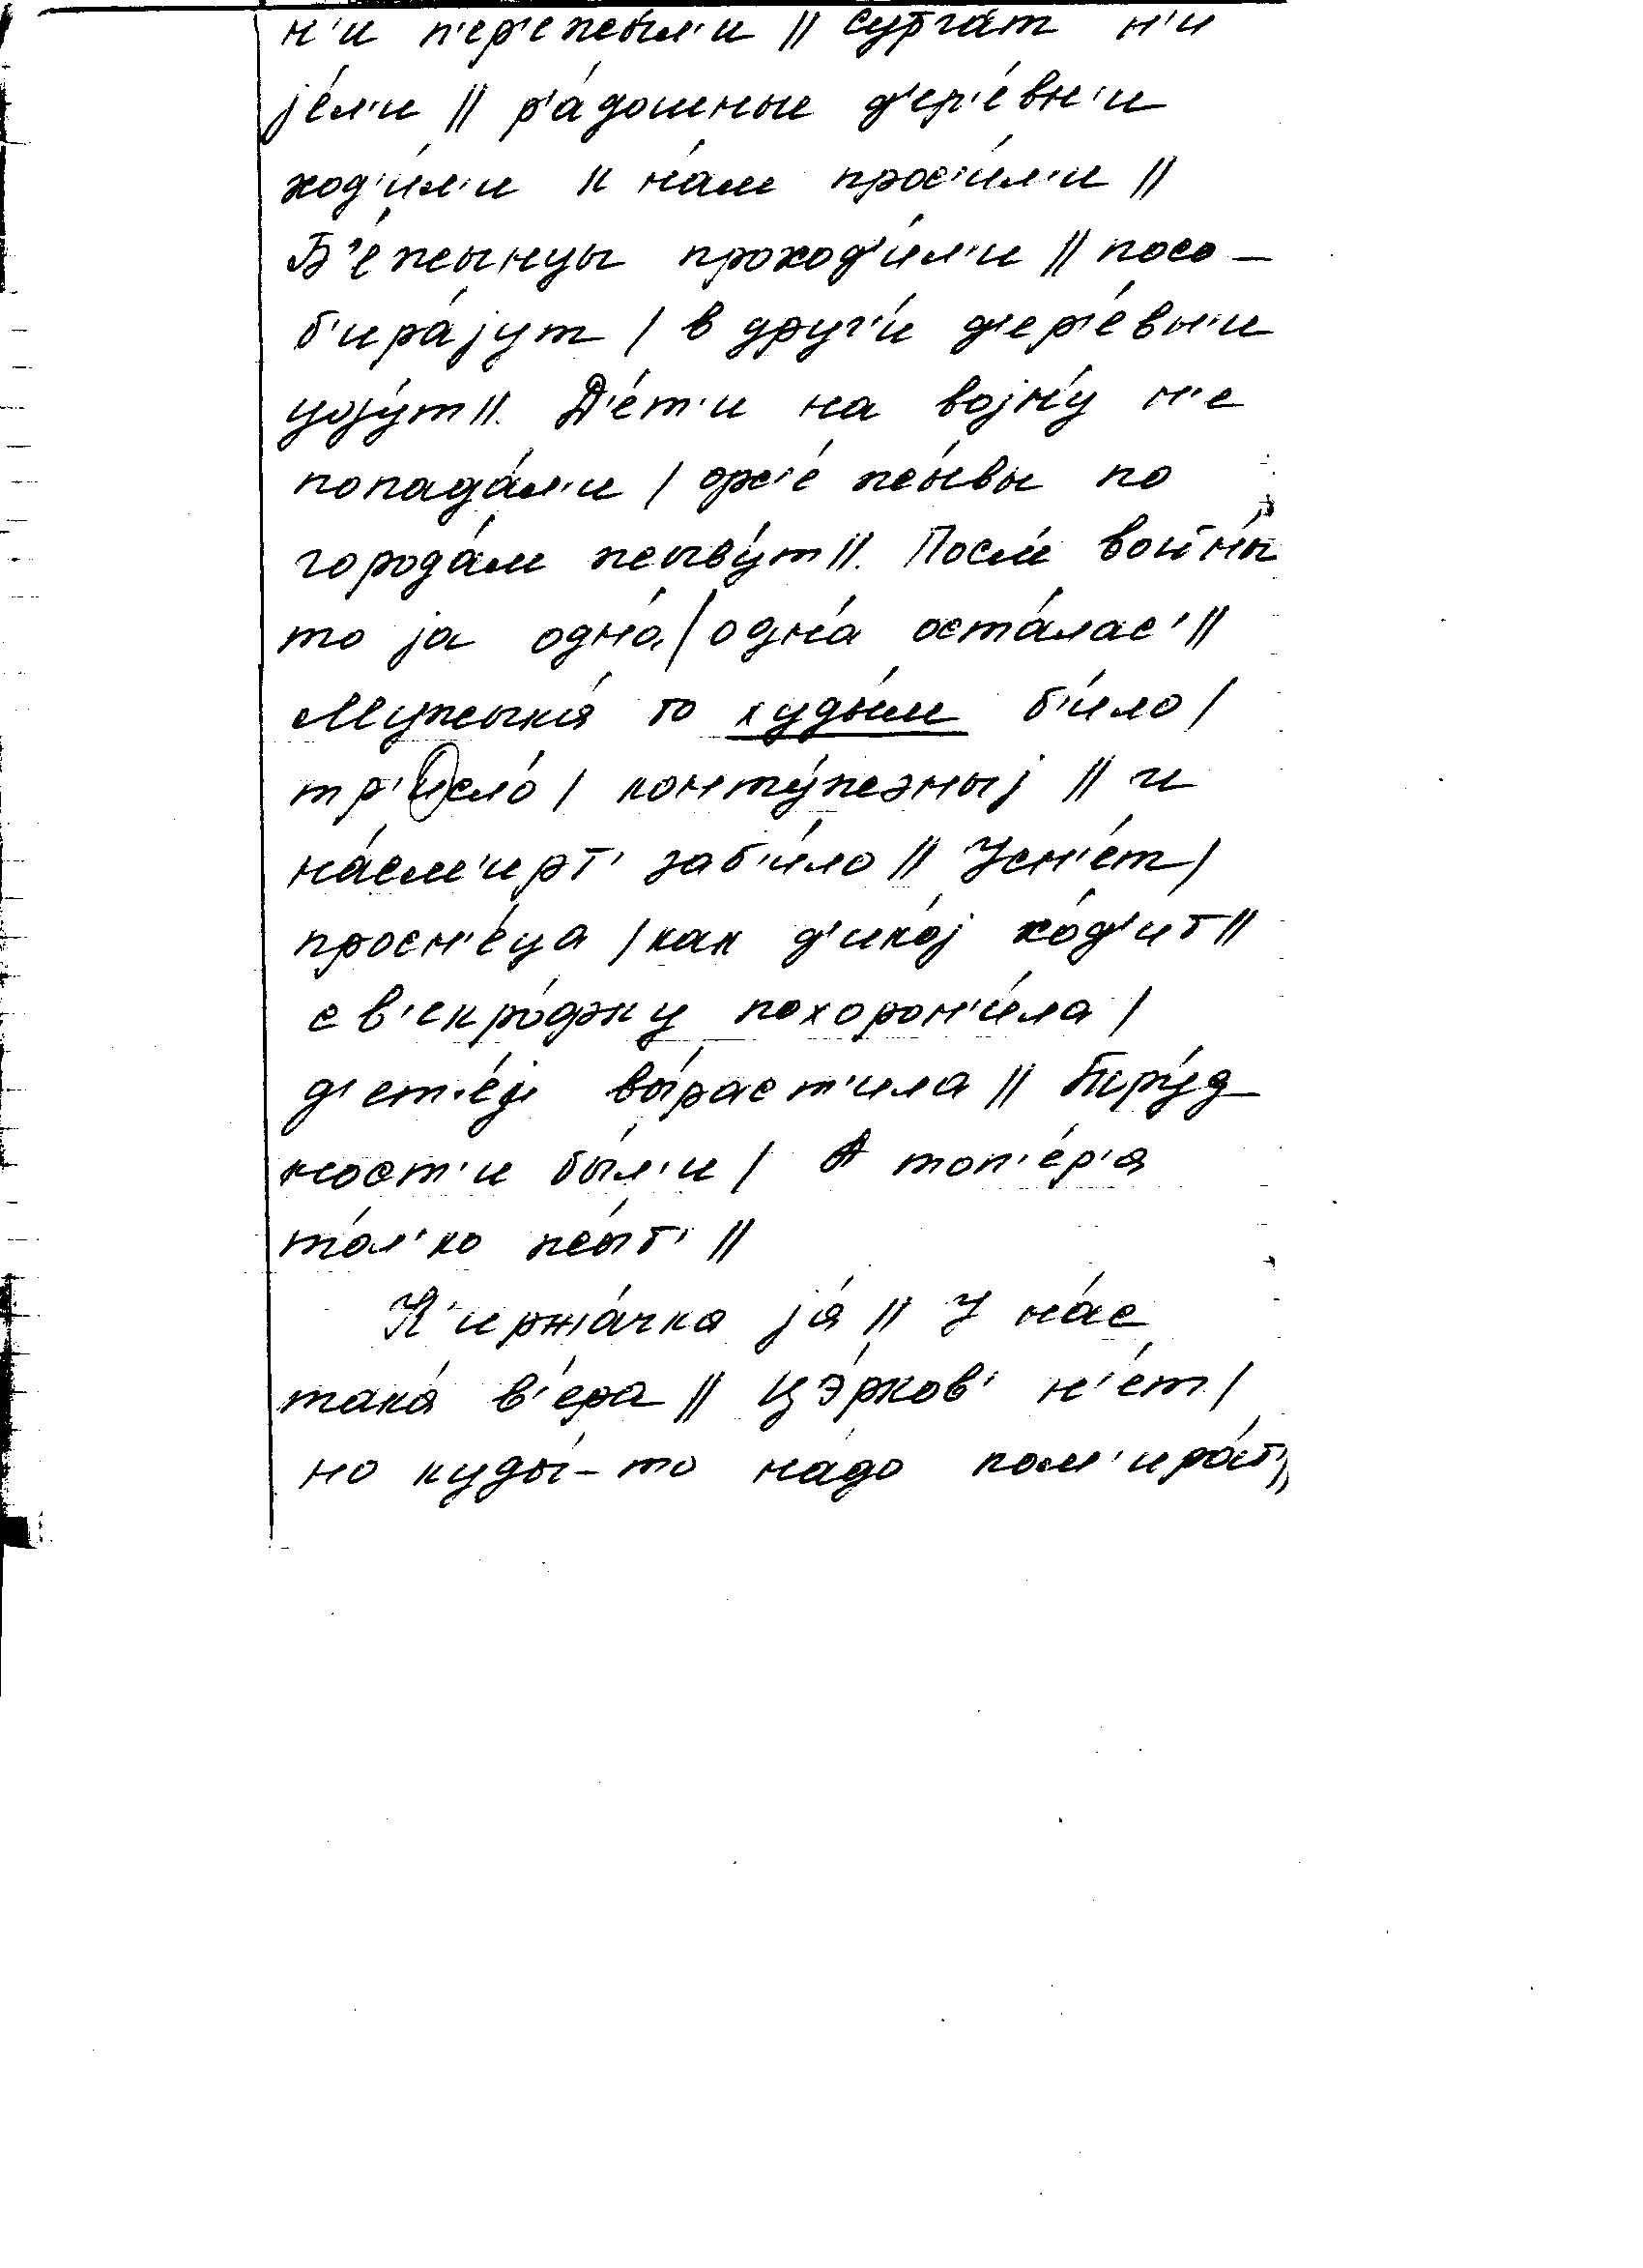 н'и п'ер'ежы́л'и || Сурга́т н'и
jе́л'и || р'а́дошные д'ер'е́вн'и
ход'и́л'и к на́м прос'и́л'и ||
Б'е́жынцы проход'и́л'и || посо-
б'ира́jут / в друг'и́ д'ер'е́вн'и
уjу́т ||. Д'е́т'и на воjну́ н'е
попада́л'и / фс'е́ жы́вы по
города́м жыву́т ||. Посл'и́ войны́
то jа одна́ / одна́ оста́лас' ||
Мужыка́ то худы́м б'и́ло /
тр'исло́ / конту́жэныj || и
на́см'ирт' заб'и́ло || Усн'е́т /
просн'е́ца / как д'ико́j хо́д'ит ||
св'екро́фку похорон'и́ла /
д'ет'е́j вы́раст'ила || Тру́д
ност'и бы́л'и / А топ'е́р'а
то́л'ко жы́т' ||
К'иржа́чка jа́ || У на́с
така́ в'е́ра || Цэ́рков' н'е́т /
но куды́-то на́до пом'ира́т' ||